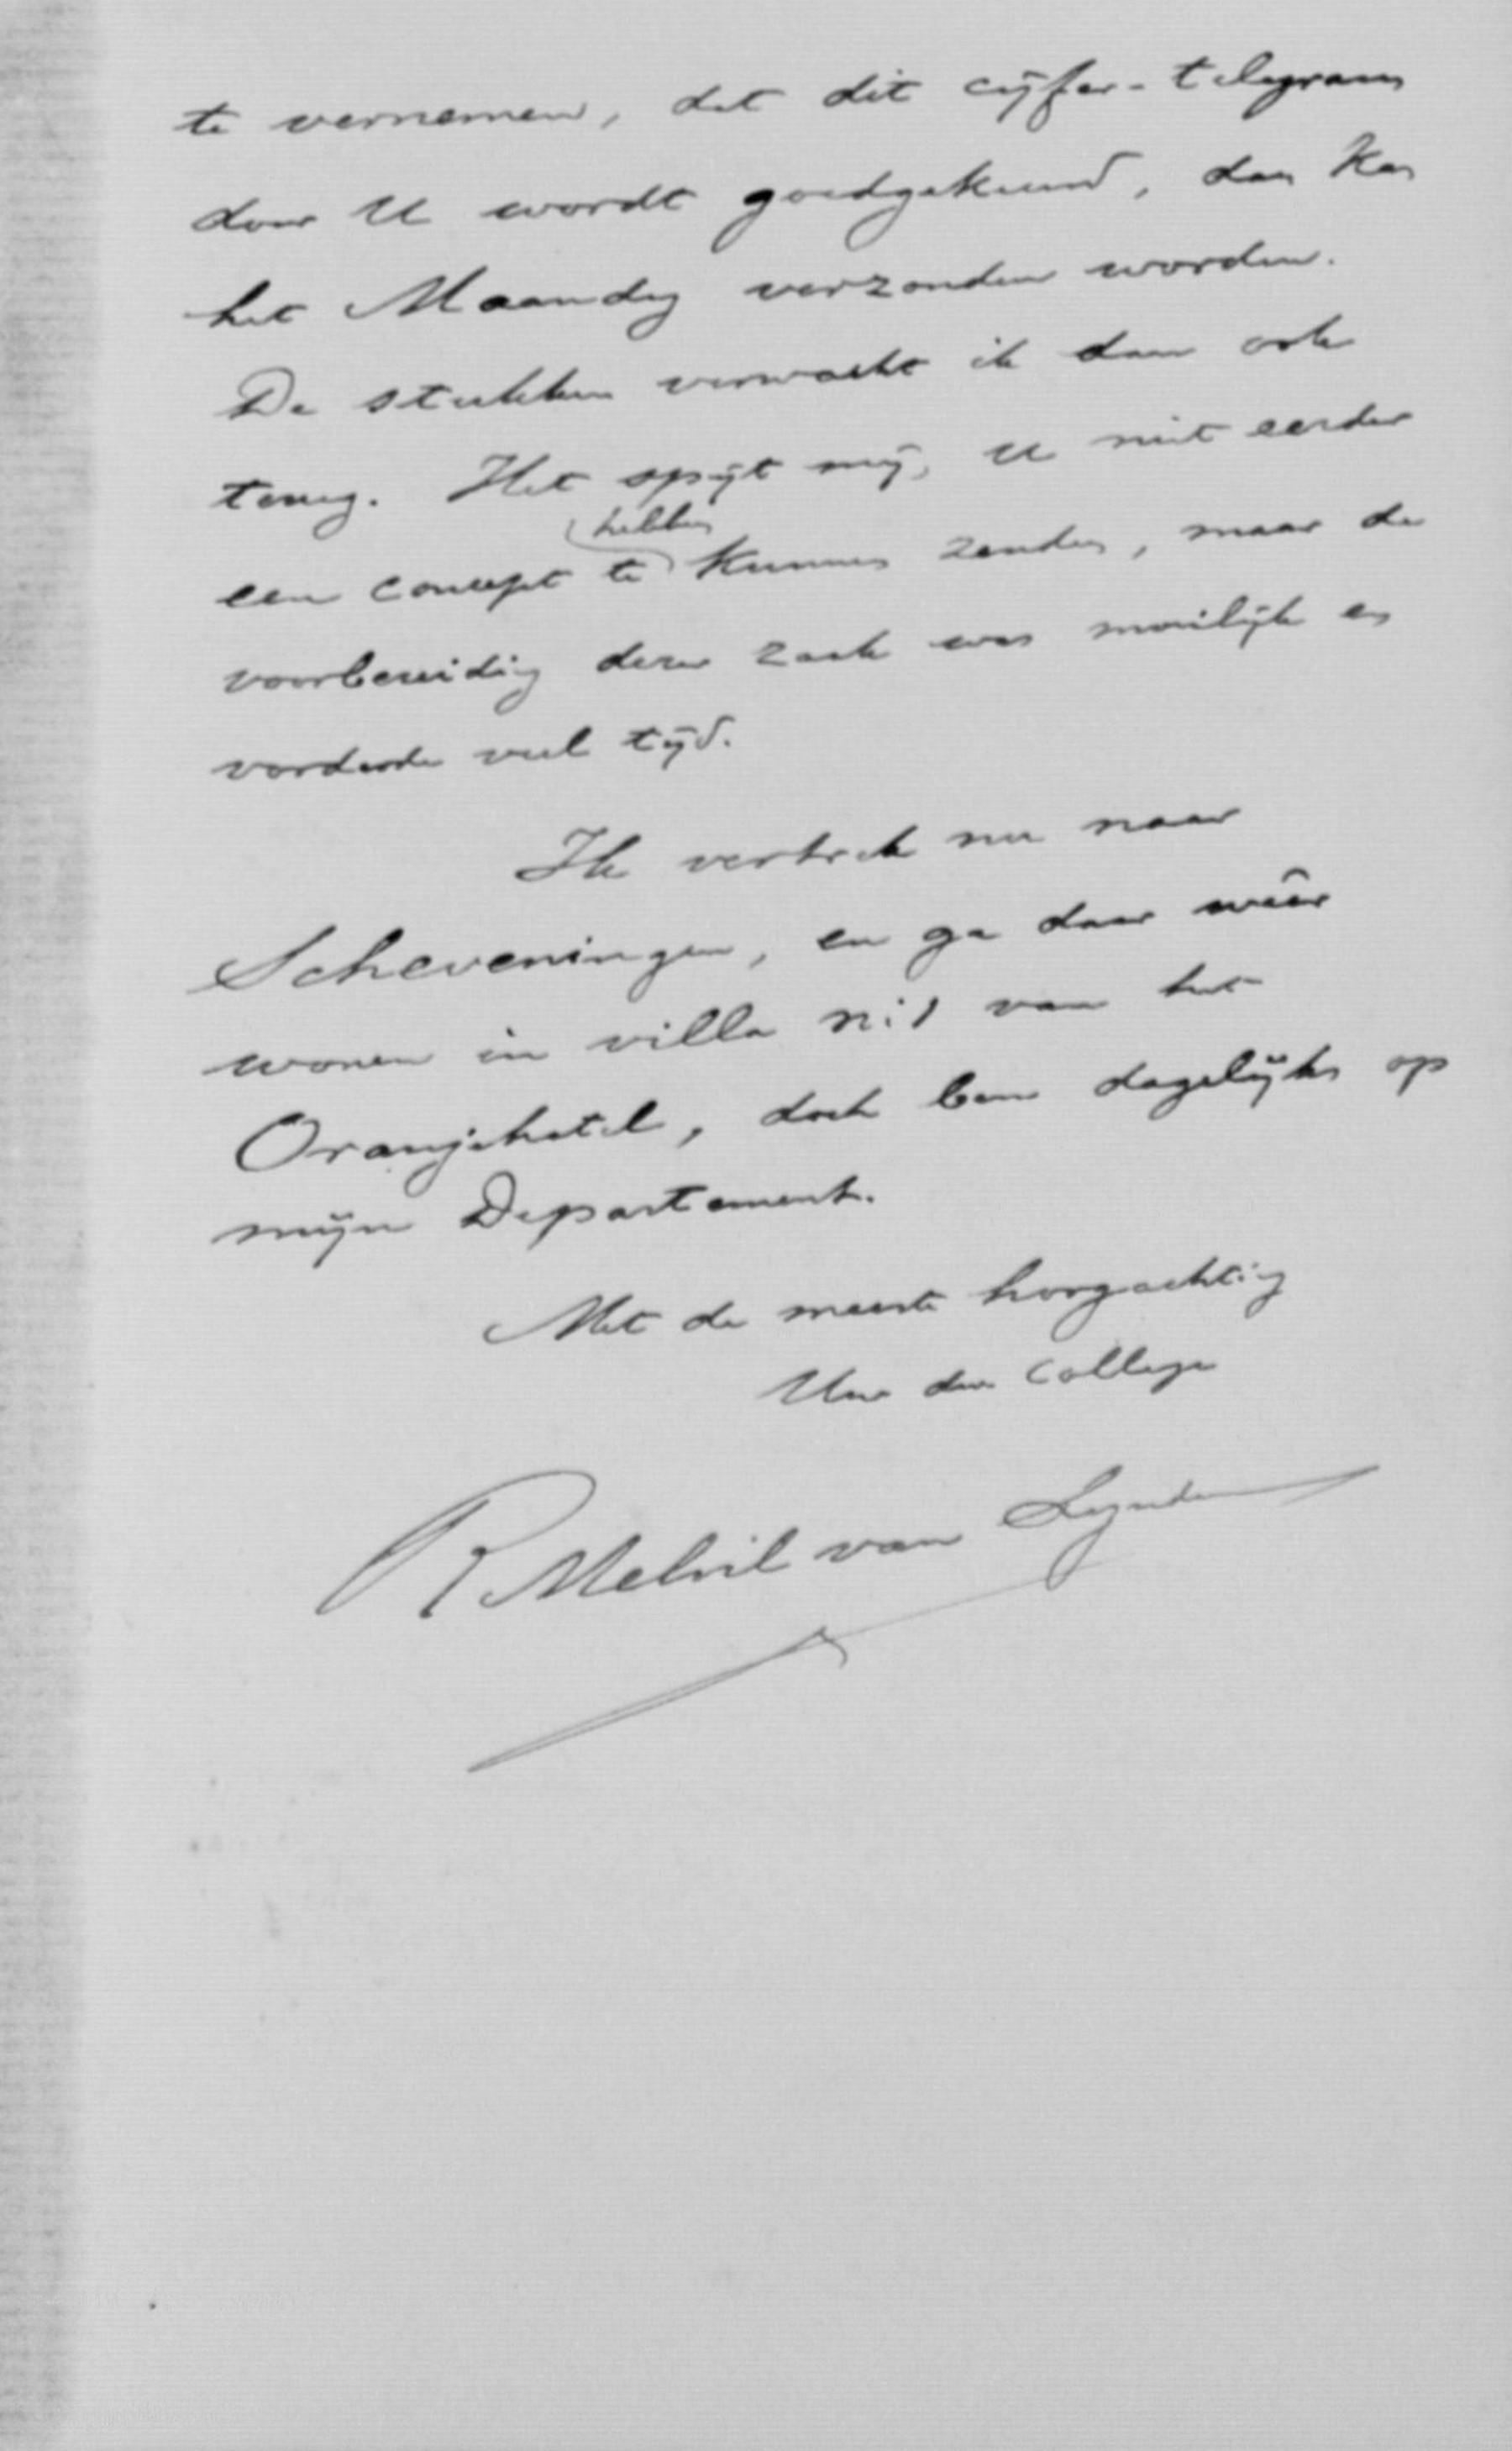 te vernemen, dat dit cijfer-telegram
door U wordt goedgekeurd, dan kan
het Maandag verzonden worden.
De stukken verwacht ik dan ook
terug. Het spijt mij, U niet eerder
hebben
een concept te kunnen zenden, maar de
voorbereiding dezer zaak was moeilijk en
vorderde veel tijd.
Ik vertrek nu naar
Scheveningen, en ga daar weêr
wonen in villa n:1 van het
Oranjehotel, doch ben dagelijks op
mijn Departement.
Met de meeste hoogachting
Uw dw College
R Melvil van Lynden